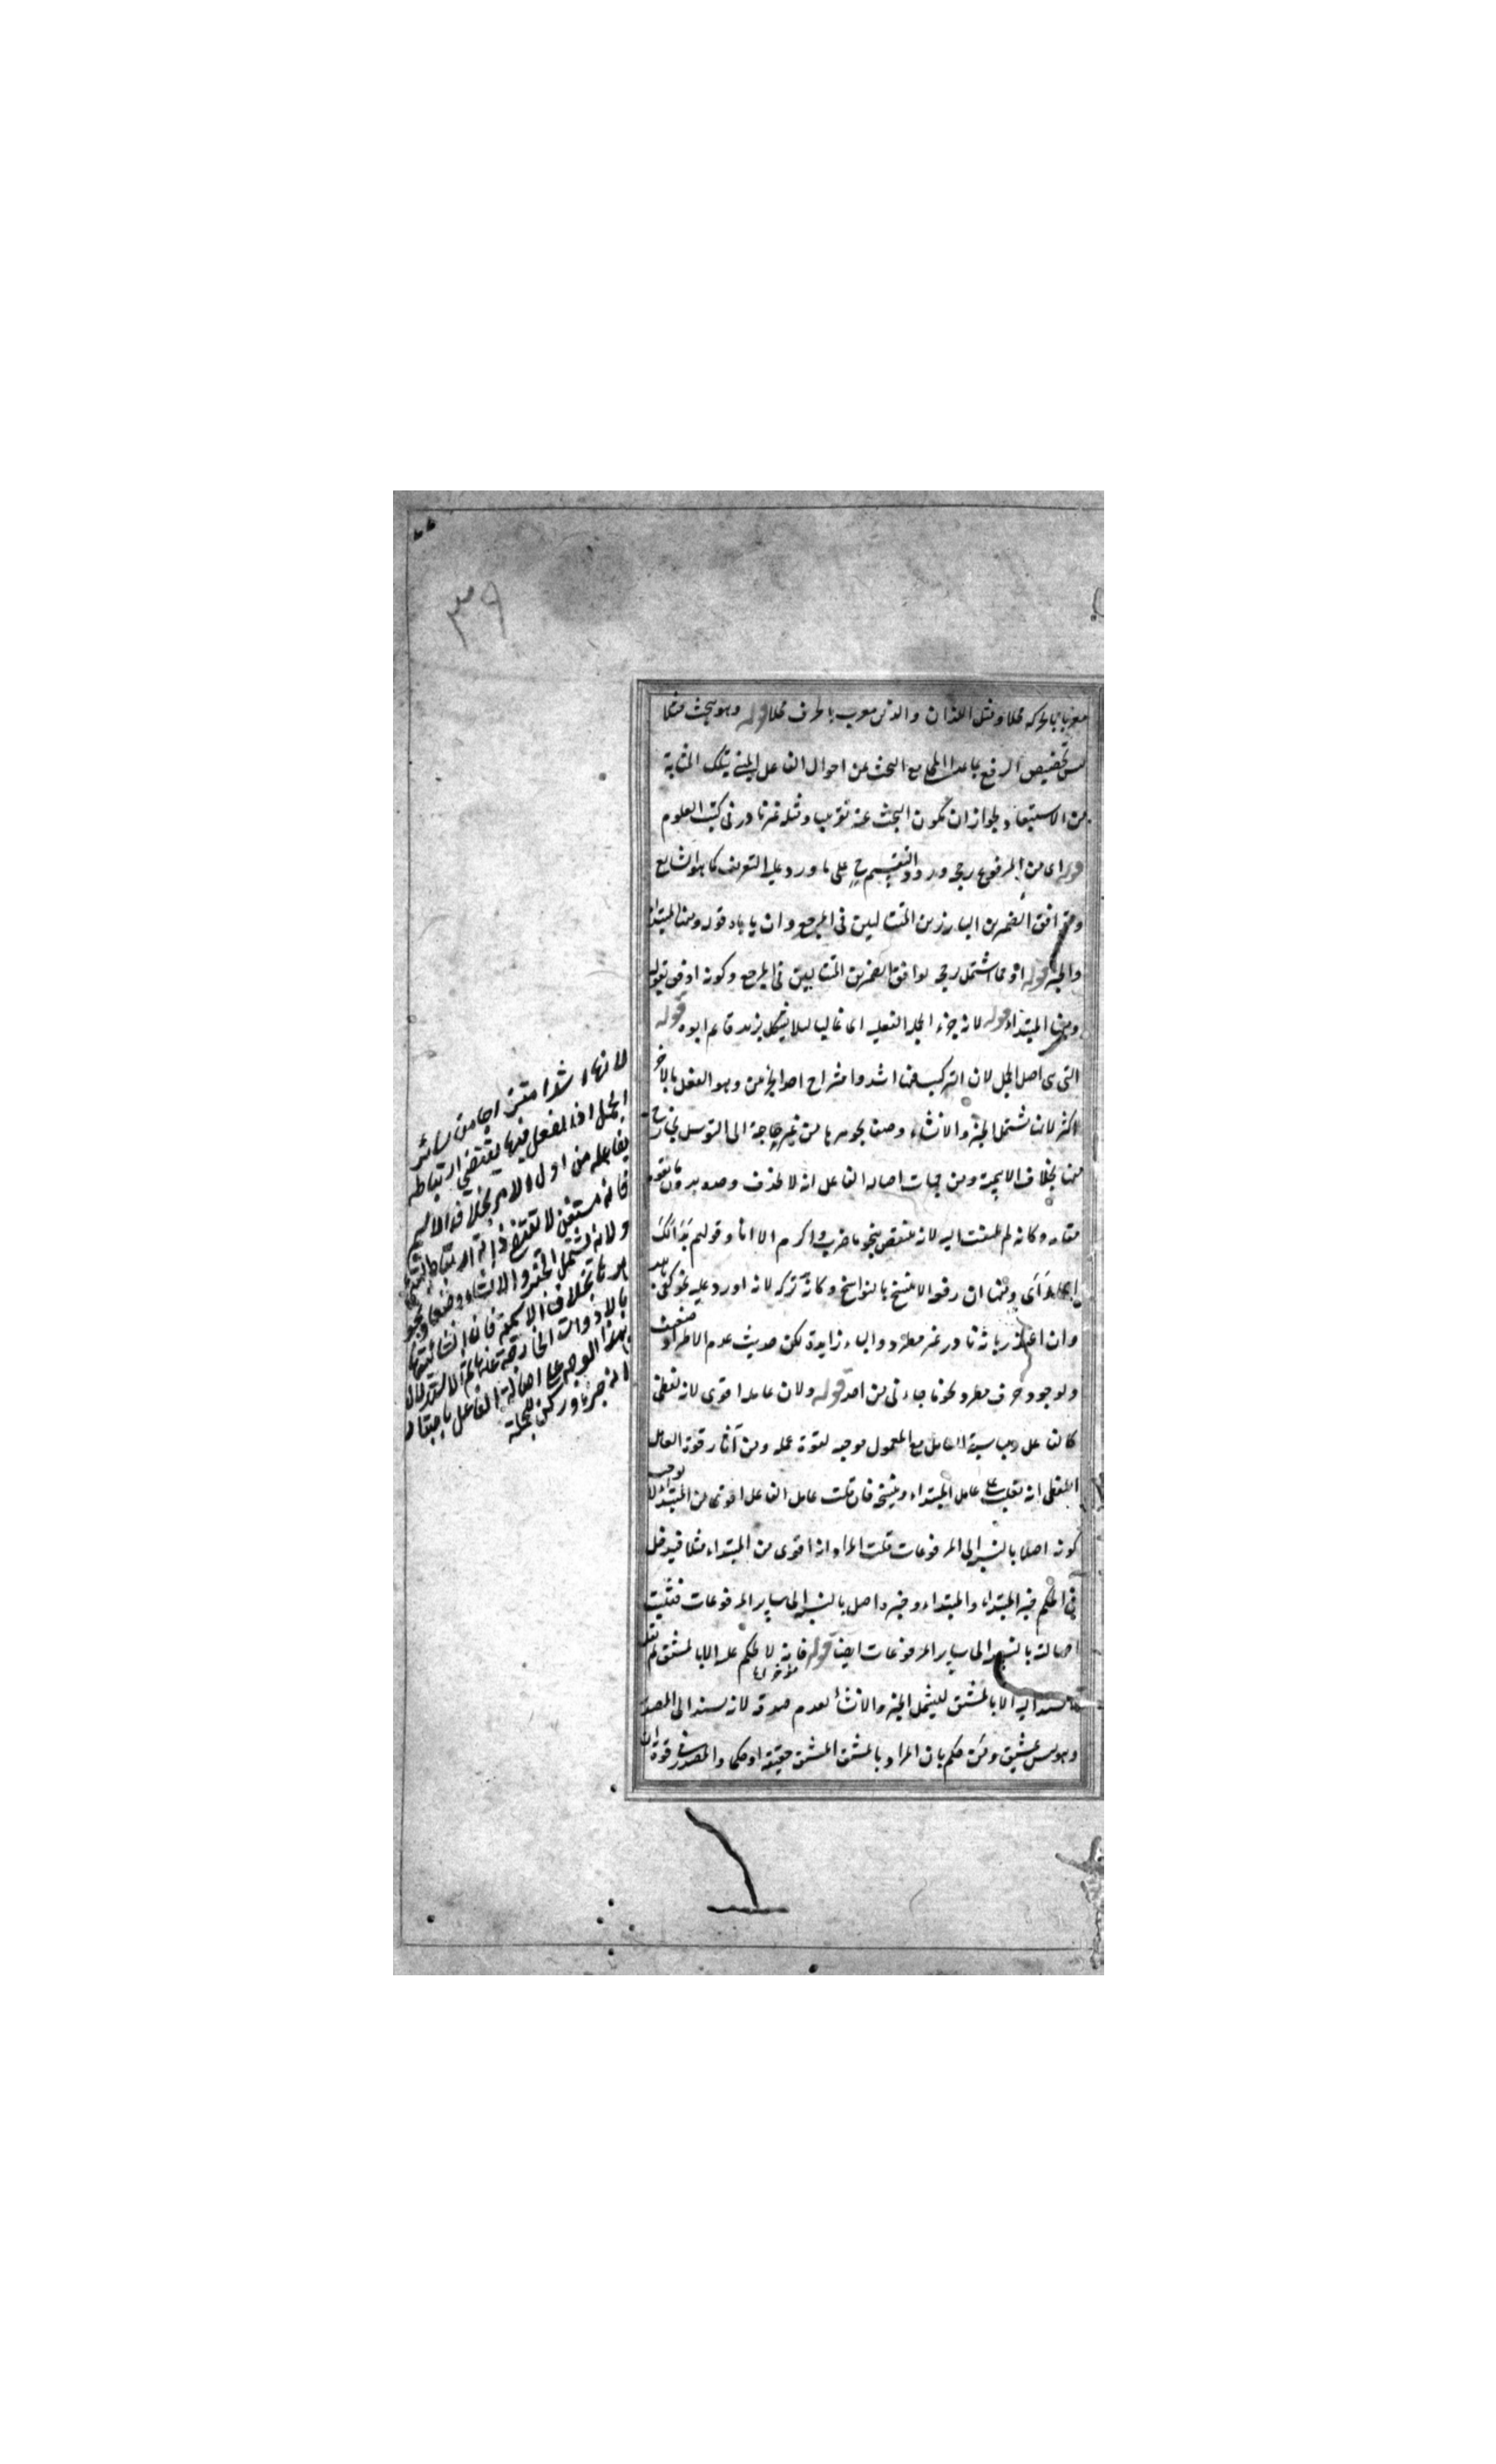 ٣٩
معربا بالحركة محلا ومثل اللذان والذين معرب بالحرف محلا قوله وهو يبحث
ليس تخصيص الرفع بما عدا المحلي مع البحث عن احوال الفاعل المبني بتلك المثابة
من الاستبعاد لجواز ان يكون البحث عنه ومثله غير نادر في كتب العلوم
قوله اي من المرفوع رجح ورود التقسيم على ما ورد عليه التعريف كما هو الشايع
وتوافق الضميرين البارزين المتقابلين في المرجع وان قوله ومنها المبتدا
والخبر قوله او مما اشتمل رجح توافق الضميرين المتقابلين في المرجع وكونه اوفق بقوله
ومنها المبتداء قوله لانه جزء الجملة الفعلية اي غالبا لئلا يشكل بزيد قائم ابوه قوله
التي هي اصل الجمل لان التركيب اشد وامتزاج احد الجزئين وهو الفعل بالآخر
اكثر لانها تشتمل الخبر والانشاء وضعا بجوهرها من غير حاجة الى التوسل بخارج
منها بخلاف الاسمية ومن جهات اصالة الفاعل انه لا يحذف وحده بدون ما يقوم
مقامه وكانه لم يلتفت اليه لانه منتقض بنحو ما ضرب واكرم الا انا وقولهم
ومنها ان رفعه لا ينسخ بالنواسخ وكانه تركه لانه اورد عليه نحو كفى
وان اعتذر بانه نادر غير مطرد والباء زايدة لكن حديث عدم الاطراد
ولوجود حرف مطرد نحو ما جاءني من احد قوله ولان عامله اقوى لانه لفظي
كالفاعل ومناسبة العامل مع المعمول موجبة لقوة عمله ومن آثار قوة العامل
اللفظي انه يغلب على عامل المبتداء وينسخه فان قلت عامل الفاعل اقوى من المبتدا
كونه اصلا بالنسبة الى المرفوعات قلت المراد انه اقوى من المبتداء مثلا فيدخل
في الحكم خبر المبتداء والمبتداء وخبره اصل بالنسبة الى ساير المرفوعات فتثبت
اصالته بالنسبة الى ساير المرفوعات ايضا قوله فانه لا يحكم عليه الا بالمشتق لم يقل
لا يسند اليه الا بالمشتق ليشمل الخبر والانشاء لعدم صدقه لانه يسند الى المصدر
وهو ليس بمشتق ومن حكم بان المراد بالمشتق المشتق حقيقة او حكما والمصدر في قوة
لانها اشد امتزاجا من سائر
الجمل اذ الفعل فيها يقتضي ارتباطه
بفاعله من اول الامر بخلاف الاسم
فانه مستغن لا يقتضي ذاته الارتباط
ولانه يشتمل الخبر والانشاء وضعا
بخلاف الاسمية فان انشائيتها
بالادوات الخارجة عنها ثم الاستدلال
بهذا الوجه على اصالة الفاعل باعتبار
انه جزء وركن للجملة